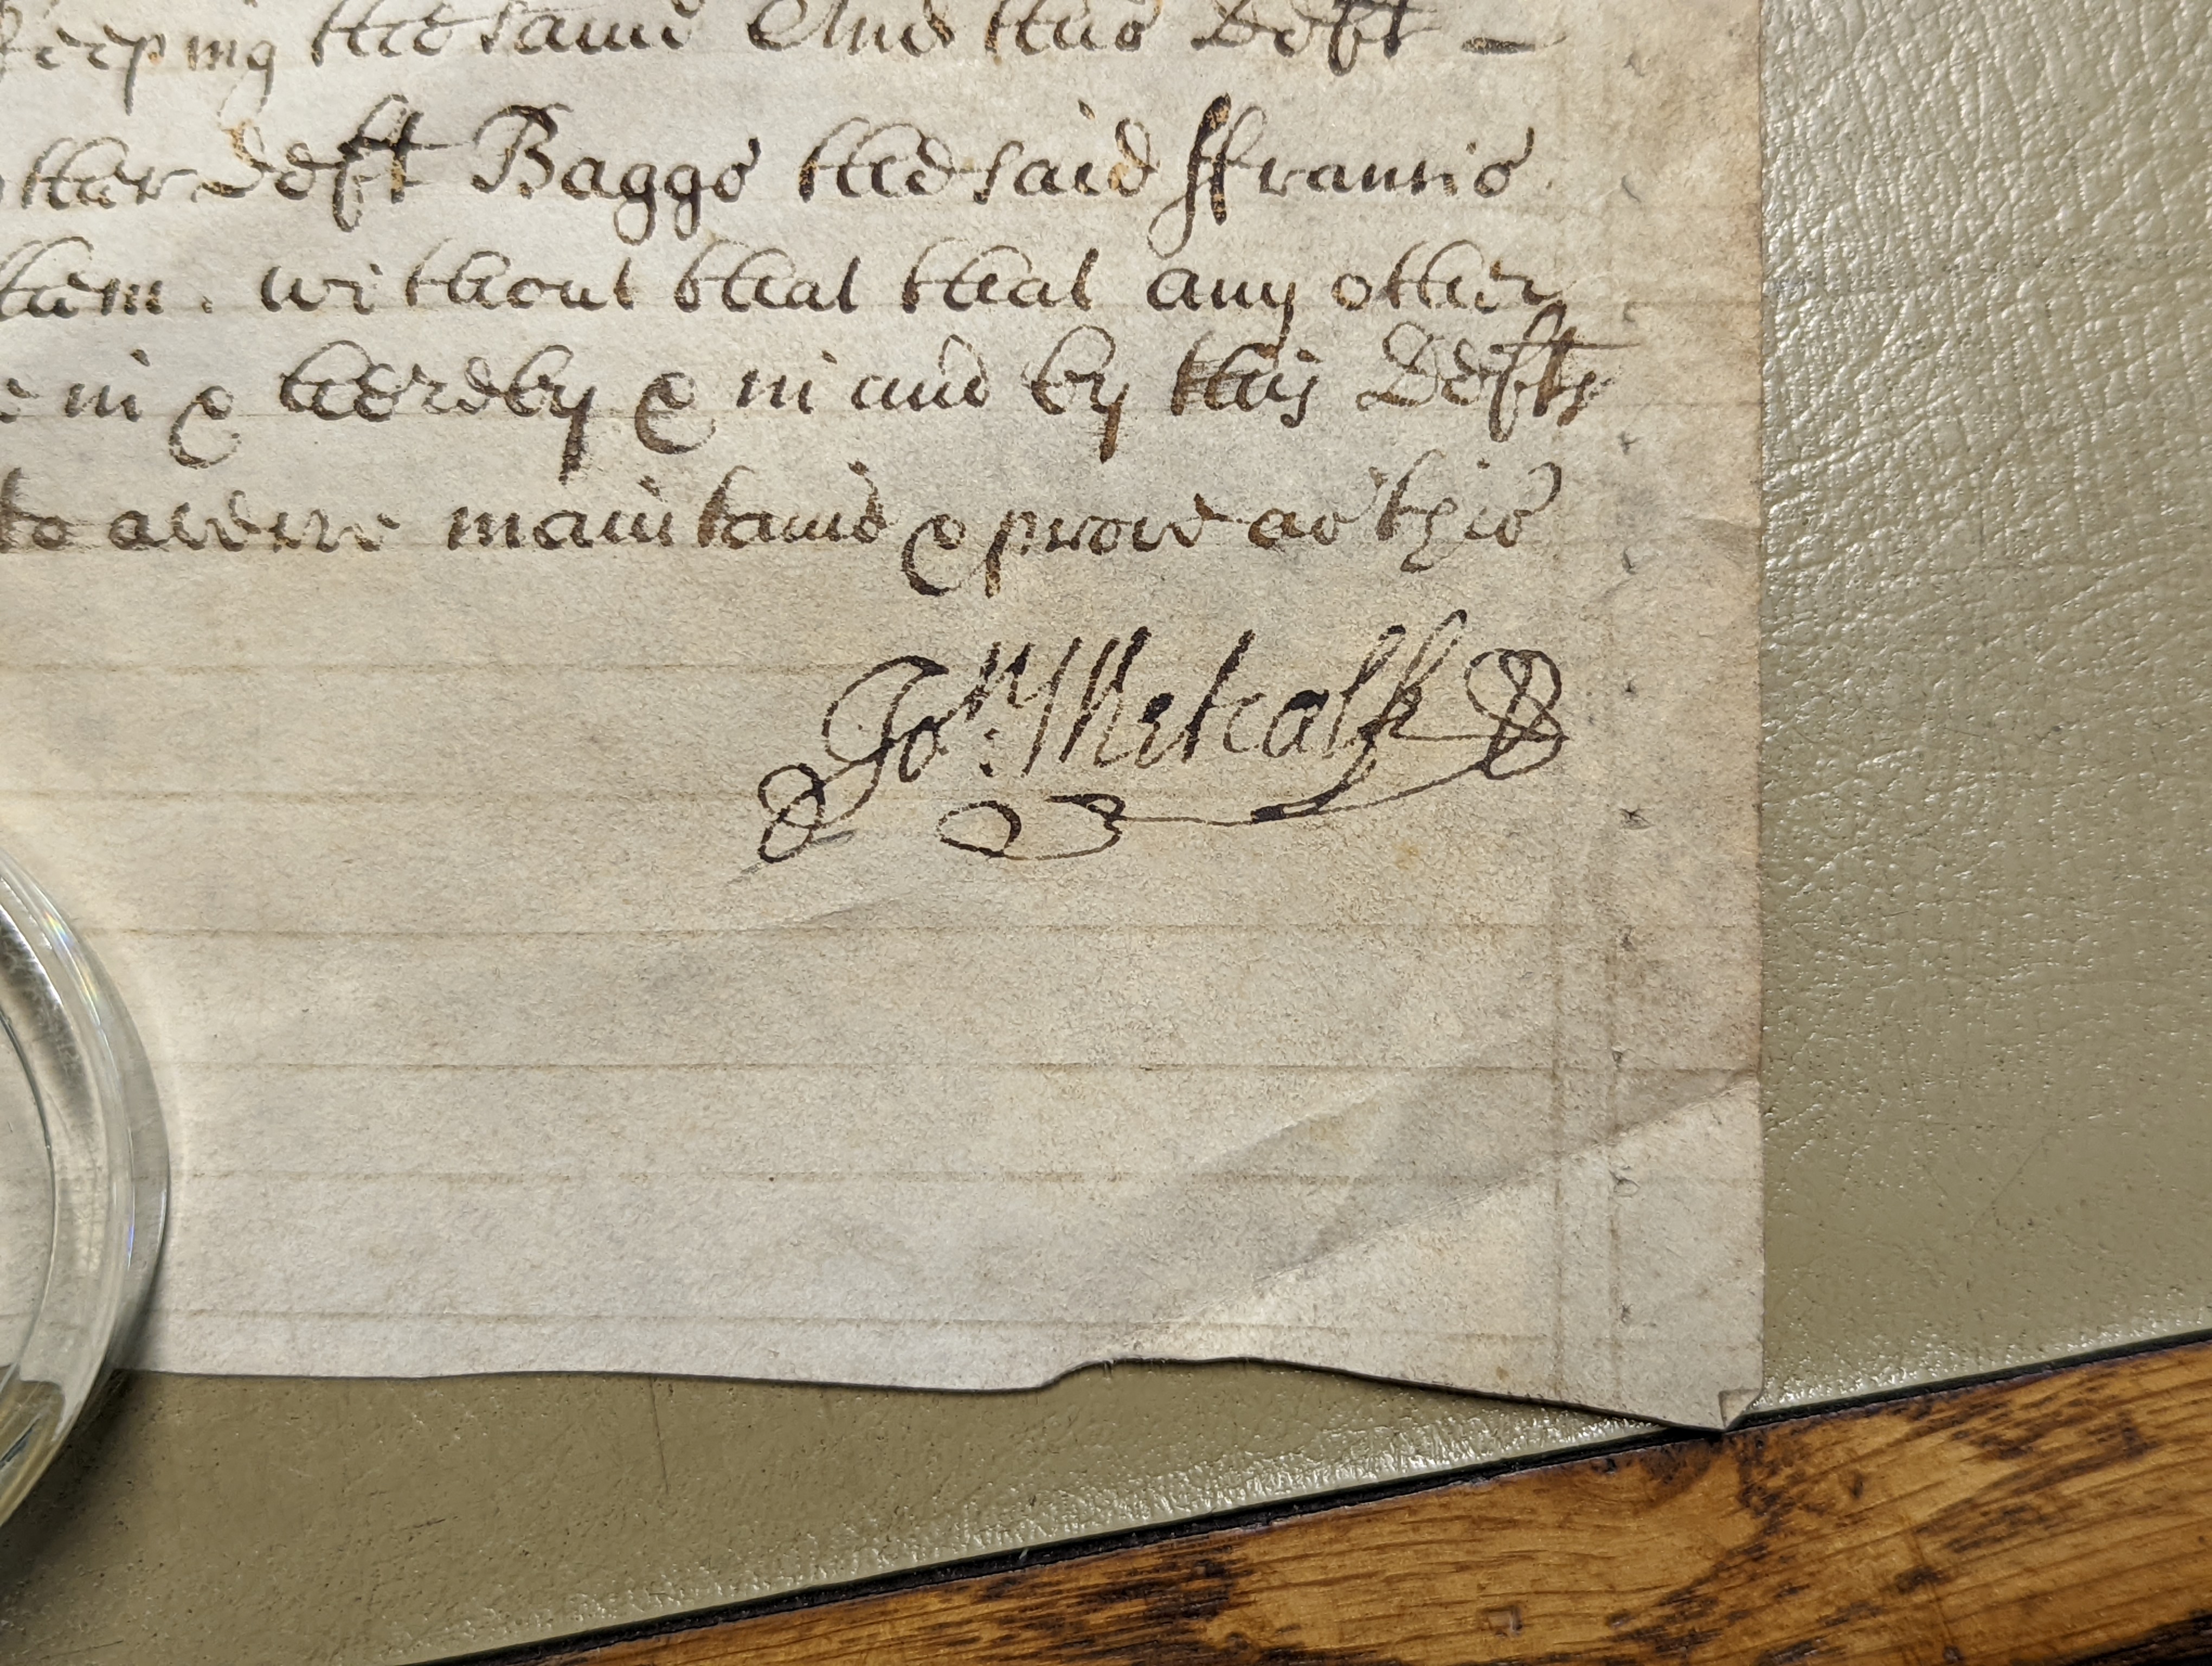 keeping the same And this Deft –
other Deft Baggs the said ffrancis
them. without that that any other
in & hereby & in and by this Defts
to averre maintaine & prove as this
Jon: Metcalfe